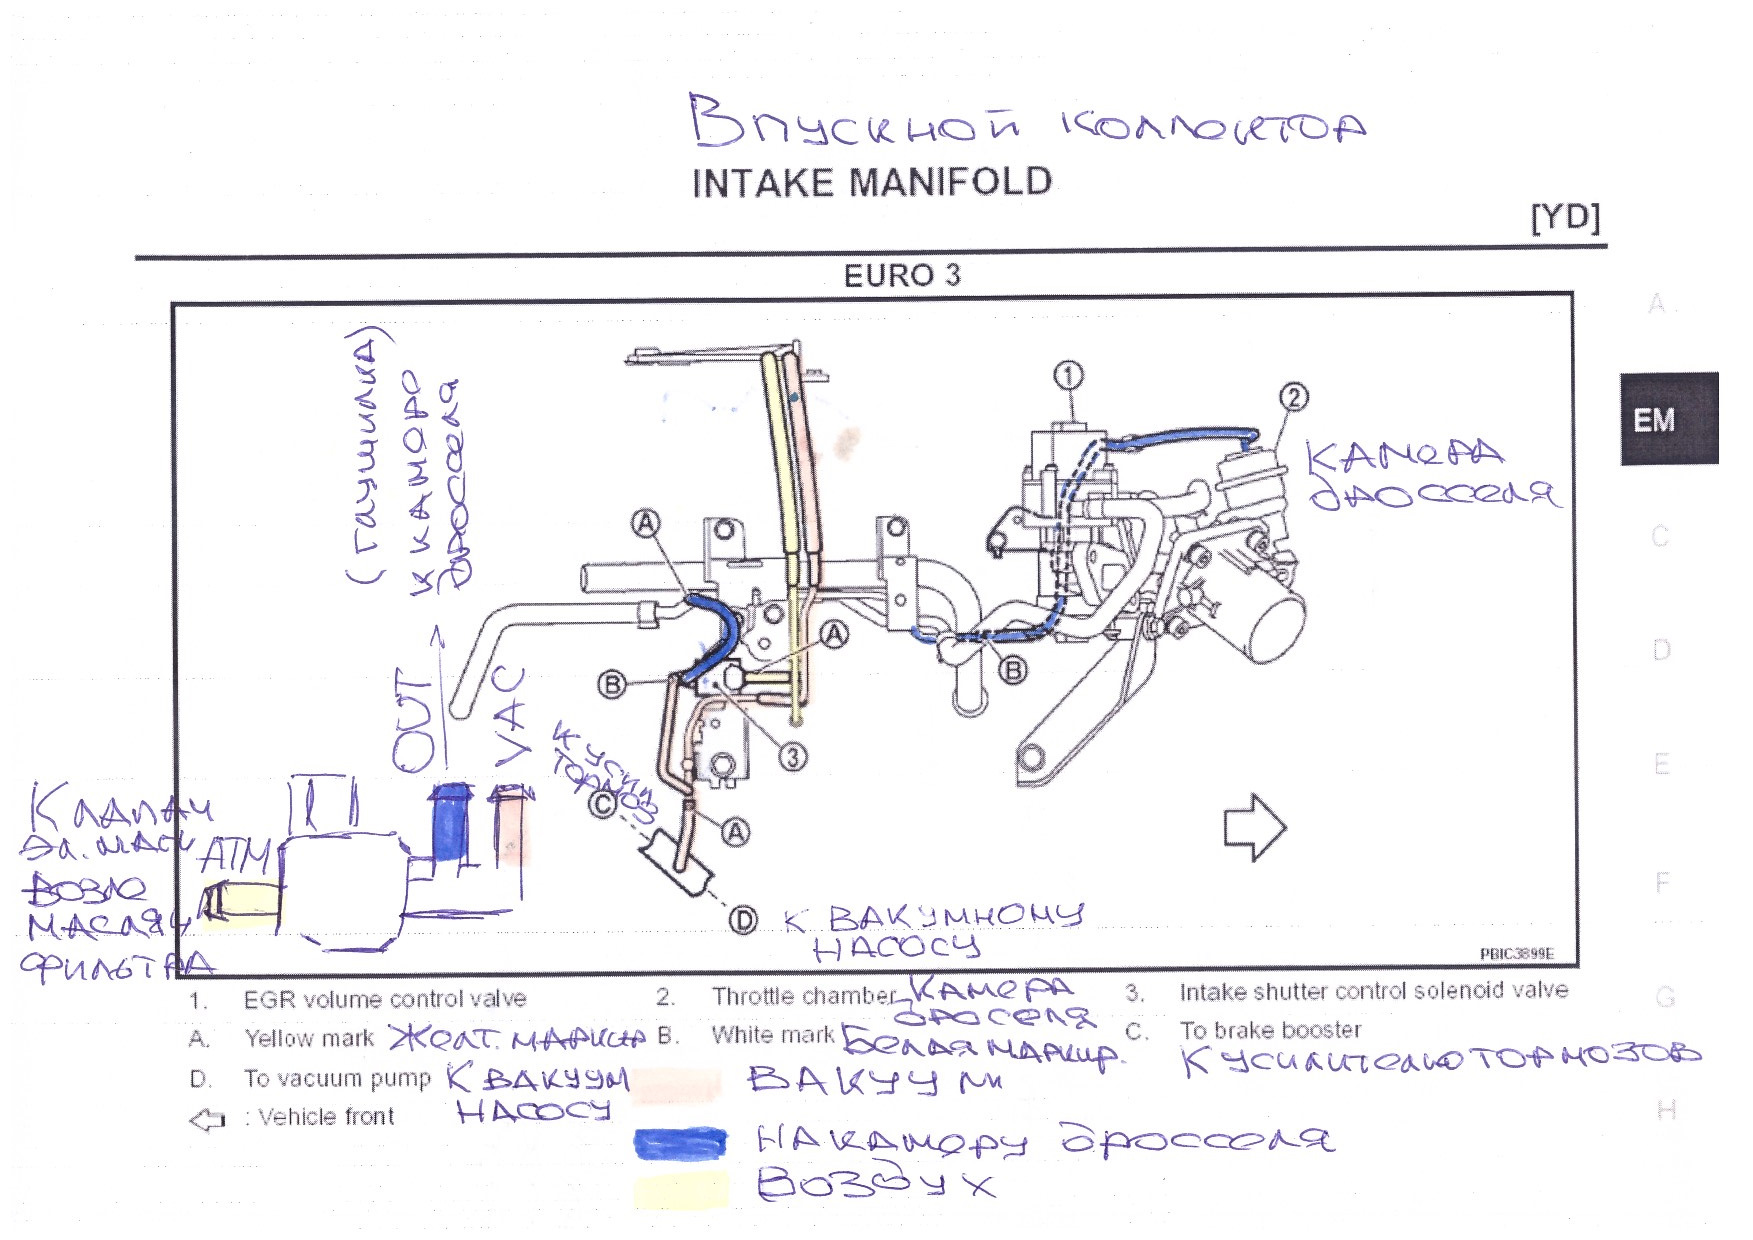 Впускной коллектор
INTAKE MANIFOLD
[YD]
EURO 3
A
EM
C
D
E
F
G
H
(глушилка)
к камере
дросселя
OUT
VAC
ATM
Клапан
эл. маг
возле
маслян
фильтра
1
2
Камера
дросселя
A
A
B
B
3
К усил
тормоз
C
A
D
к вакумному
насосу
PBIC3899E
1. EGR volume control valve 2. Throttle chamber Камера дроселя 3. Intake shutter control solenoid valve
A. Yellow mark Желт. маркир B. White mark Белая маркир. C. To brake booster
К усилителю тормозов
D. To vacuum pump К вакуум
насосу
Вакуум
: Vehicle front
На камеру дросселя
Воздух